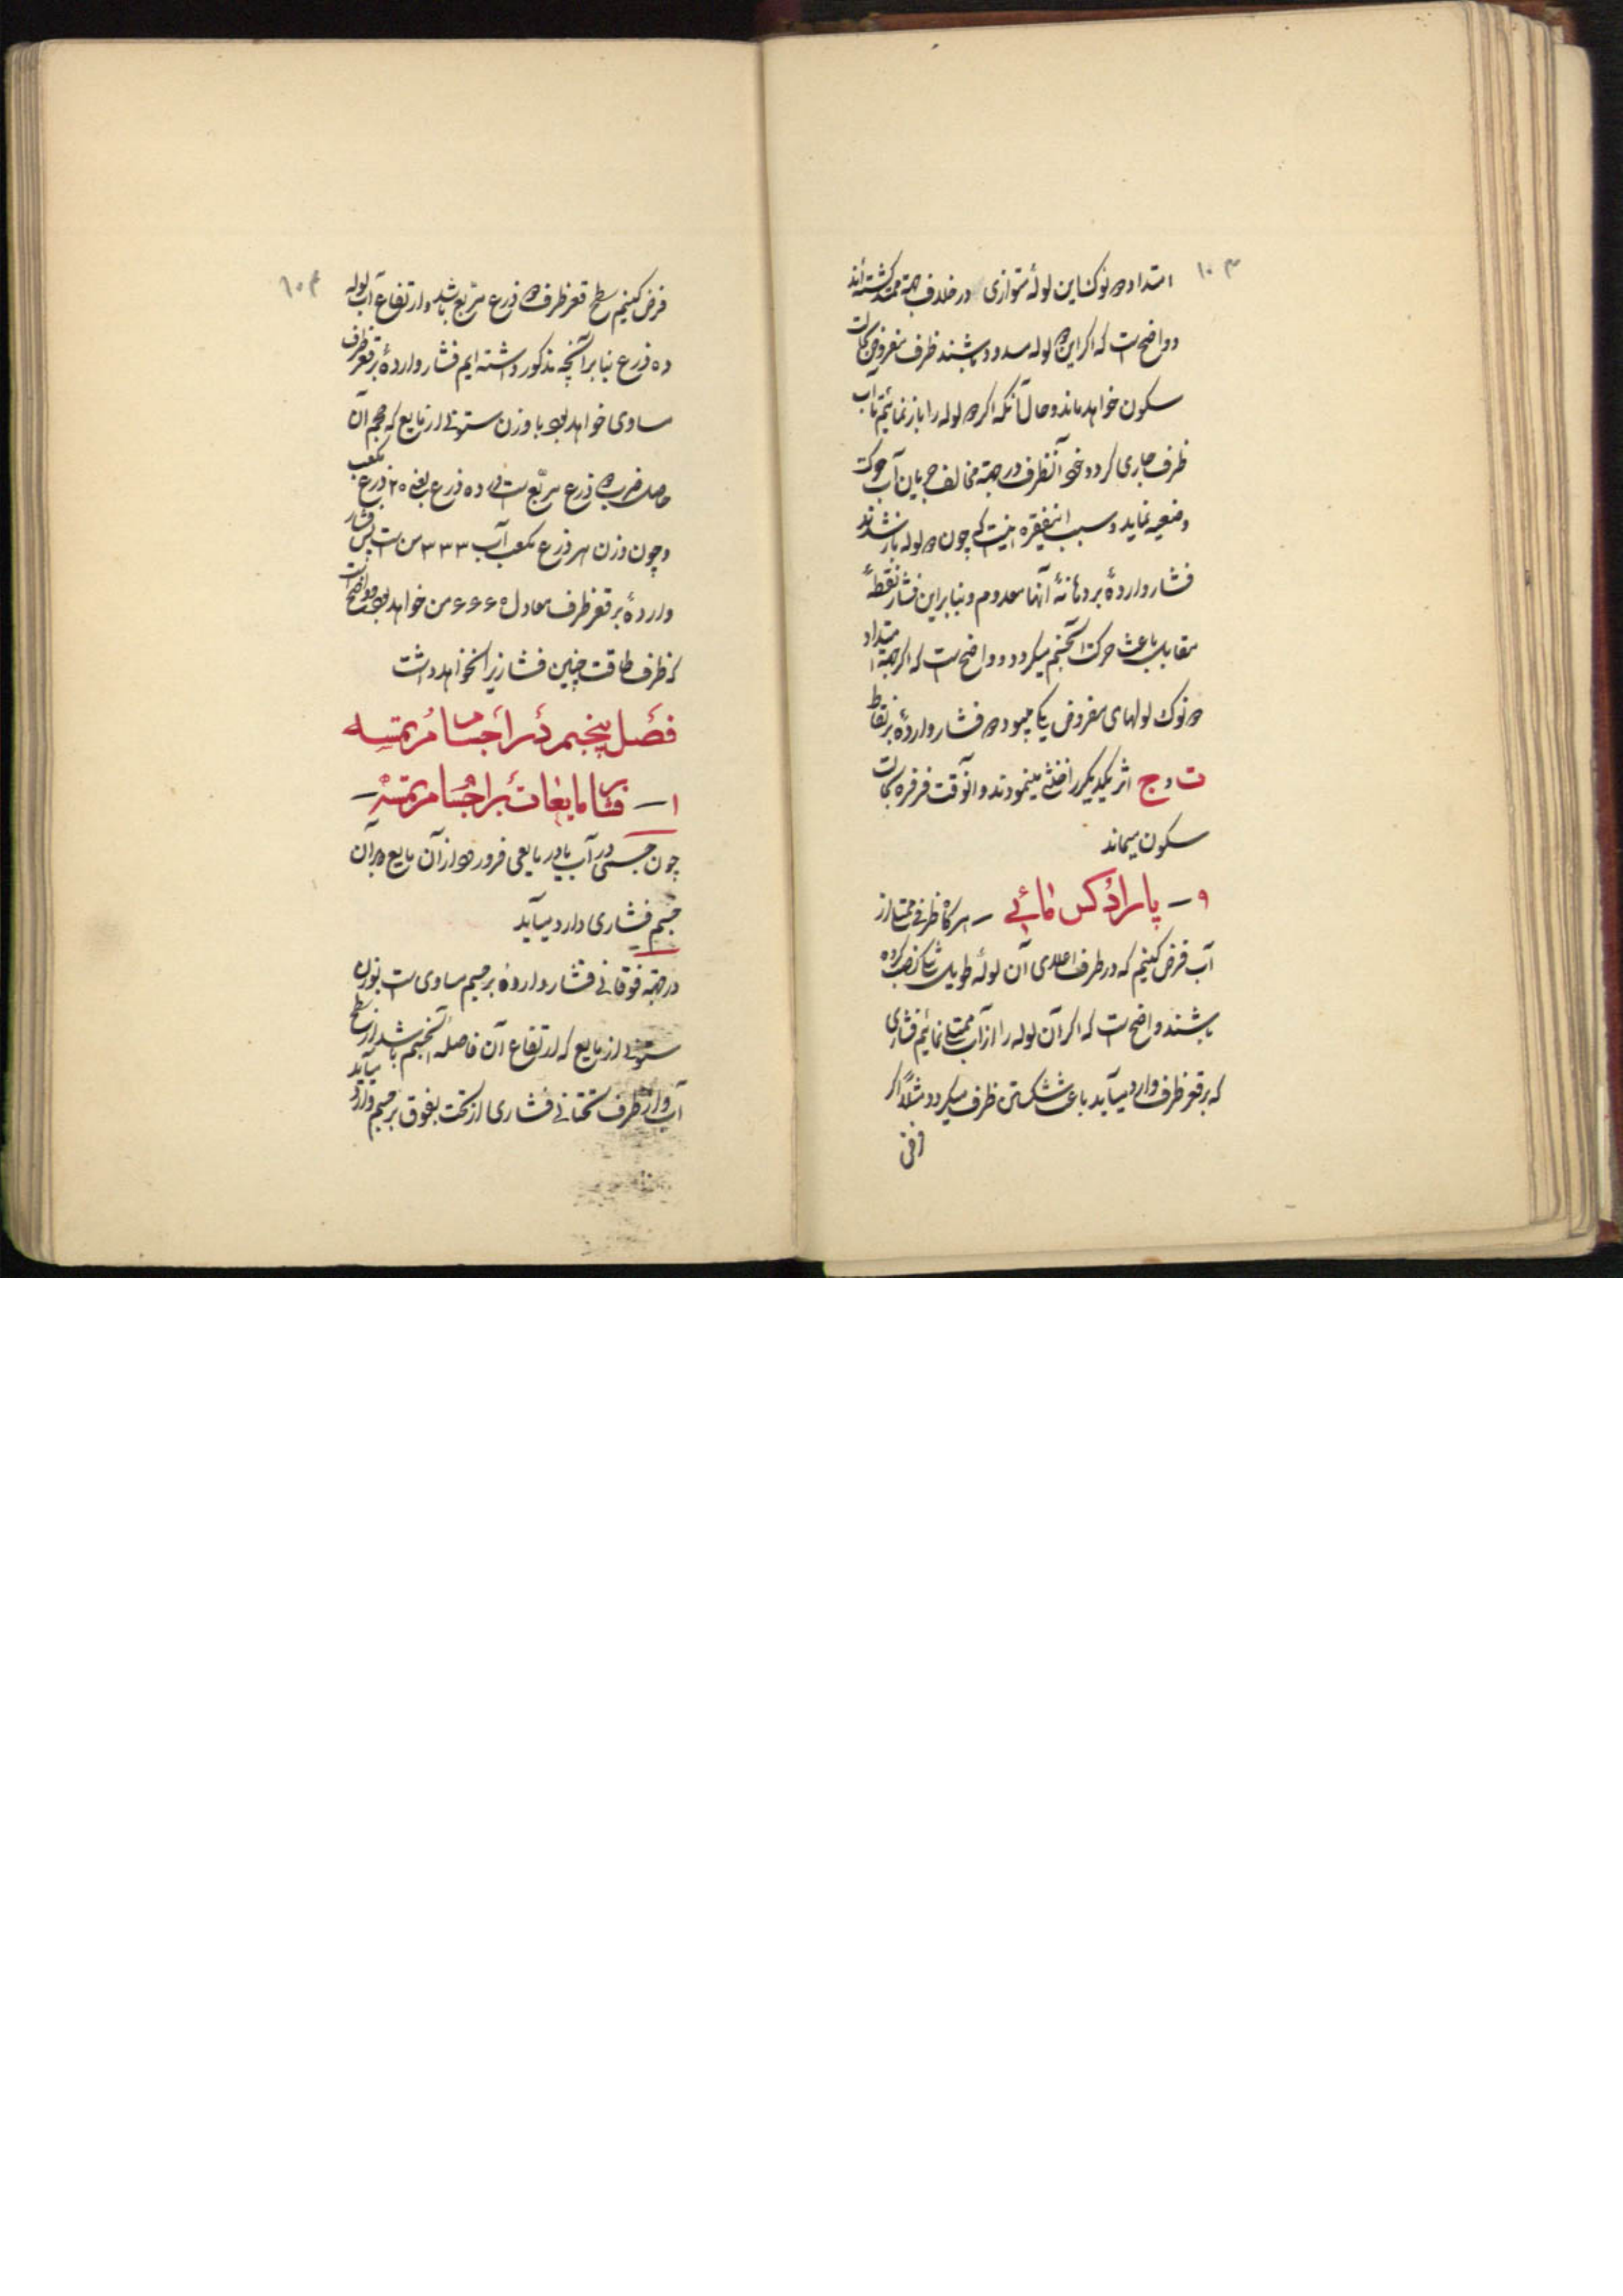 ۱۰۳
امتداد دو نوک این لوله متوازی و در خلاف جهة ممتد گشته‌اند
و واضح است که اگر این دو لوله مسدود باشند ظرف مفروض بحالت
سکون خواهد ماند و حال آنکه اگر دو لوله را باز نمائیم تا آب
ظرف جاری گردد خود آنظرف در جهة مخالف جریان آب حرکت
وضعیه نماید و سبب اینفقره اینست که چون دو لوله باز شدند
فشار واردهٔ بر دهانهٔ آنها معدوم و بنابراین فشار نقطهٔ
مقابل باعث حرکت آنجسم میگردد و واضح است که اگر جهة امتداد
دو نوک لولهای مفروض یکی میبود دو فشار واردهٔ بر نقاط
ت و ج اثر یکدیگر را خنثی مینمودند و آنوقت فرفره بحالت
سکون میماند
۹ – پارادکس مائی – هرگاه ظرفی ممتلی از
آب فرض کنیم که در طرف اعلای آن لولهٔ طویل نصب کرده
باشند واضح است که اگر آن لوله را از آب ممتلی نمائیم فشاری
که بر قعر ظرف وارد میآید باعث شکستن ظرف میگردد مثلاً اگر
فرض
۱۰۴
فرض کنیم سطح قعر ظرف دو ذرع مربع باشد و ارتفاع آب لوله
ده ذرع بنا برآنچه مذکور داشته‌ایم فشار واردهٔ بر قعر ظرف
مساوی خواهد بود با وزن ستونی از مایع که حجم آن
حاصل ضرب دو ذرع مربع است در ده ذرع یعنی ۲۰ ذرع مکعب
و چون وزن هر ذرع مکعب آب ۳۳۳ من است پس فشار
واردهٔ بر قعر ظرف معادل ۶۶۶۰ من خواهد بود و واضح است
که ظرف طاقت چنین فشار زیرا نخواهد داشت
فصل پنجم در اجسام مرتمسه
۱ – فشار مایعات بر اجسام مرتمسه –
چون جسمی در آب یا در مایعی فرو رود از آن مایع بر آن
جسم فشاری وارد میآید
در جهة فوقانی فشار واردهٔ بر جسم مساوی است بوزن
ستونی از مایع که ارتفاع آن فاصلهٔ آنجسم باشد از سطح
آب و از طرف تحتانی فشاری از تحت بفوق بر جسم وارد میآید